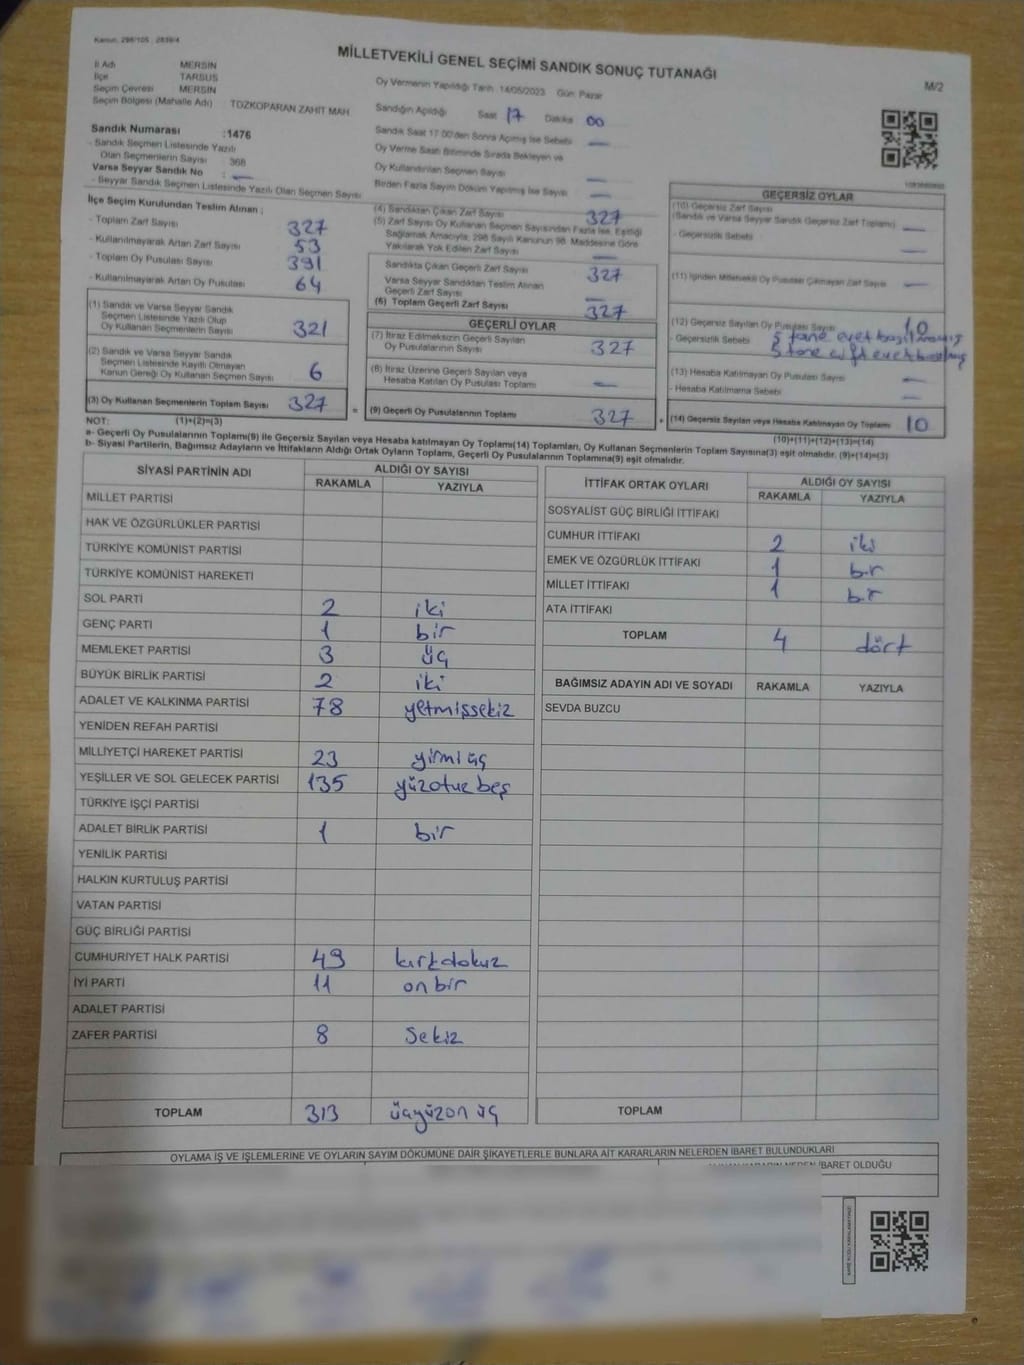 Kanun: 298/105 : 2839/4
MİLLETVEKİLİ GENEL SEÇİMİ SANDIK SONUÇ TUTANAĞI
M/2
İl Adı MERSİN
İlçe TARSUS
Seçim Çevresi MERSİN
Seçim Bölgesi (Mahalle Adı) TOZKOPARAN ZAHİT MAH
Sandık Numarası :1476
- Sandık Seçmen Listesinde Yazılı
Olan Seçmenlerin Sayısı : 368
Varsa Seyyar Sandık No : —
- Seyyar Sandık Seçmen Listesinde Yazılı Olan Seçmen Sayısı
İlçe Seçim Kurulundan Teslim Alınan :
- Toplam Zarf Sayısı 327
- Kullanılmayarak Artan Zarf Sayısı 53
- Toplam Oy Pusulası Sayısı 391
- Kullanılmayarak Artan Oy Pusulası 64
(1) Sandık ve Varsa Seyyar Sandık
Seçmen Listesinde Yazılı Olup
Oy Kullanan Seçmenlerin Sayısı 321
(2) Sandık ve Varsa Seyyar Sandık
Seçmen Listesinde Kayıtlı Olmayan
Kanun Gereği Oy Kullanan Seçmen Sayısı 6
(3) Oy Kullanan Seçmenlerin Toplam Sayısı 327 =
Oy Vermenin Yapıldığı Tarih: 14/05/2023 Gün: Pazar
Sandığın Açıldığı Saat 17 Dakika 00
Sandık Saat 17:00'den Sonra Açılmış İse Sebebi —
Oy Verme Saati Bitiminde Sırada Bekleyen ve
Oy Kullandırılan Seçmen Sayısı —
Birden Fazla Sayım Döküm Yapılmış İse Sayısı —
(4) Sandıktan Çıkan Zarf Sayısı 327
(5) Zarf Sayısı Oy Kullanan Seçmen Sayısından Fazla İse, Eşitliği
Sağlamak Amacıyla, 298 Sayılı Kanunun 98. Maddesine Göre
Yakılarak Yok Edilen Zarf Sayısı —
Sandıkta Çıkan Geçerli Zarf Sayısı 327
Varsa Seyyar Sandıktan Teslim Alınan
Geçerli Zarf Sayısı —
(6) Toplam Geçerli Zarf Sayısı 327
GEÇERLİ OYLAR
(7) İtiraz Edilmeksizin Geçerli Sayılan
Oy Pusulalarının Sayısı 327
(8) İtiraz Üzerine Geçerli Sayılan veya
Hesaba Katılan Oy Pusulası Toplamı —
(9) Geçerli Oy Pusulalarının Toplamı 327 +
GEÇERSİZ OYLAR
(10) Geçersiz Zarf Sayısı
(Sandık ve Varsa Seyyar Sandık Geçersiz Zarf Toplamı) —
- Geçersizlik Sebebi —
(11) İçinden Milletvekili Oy Pusulası Çıkmayan Zarf Sayısı —
(12) Geçersiz Sayılan Oy Pusulası Sayısı 10
- Geçersizlik Sebebi 5 tane evet
5 tane çift evet
(13) Hesaba Katılmayan Oy Pusulası Sayısı —
- Hesaba Katılmama Sebebi —
(14) Geçersiz Sayılan veya Hesaba Katılmayan Oy Toplamı 10
NOT: (1)+(2)=(3)
(10)+(11)+(12)+(13)=(14)
a- Geçerli Oy Pusulalarının Toplamı(9) ile Geçersiz Sayılan veya Hesaba katılmayan Oy Toplamı(14) Toplamları, Oy Kullanan Seçmenlerin Toplam Sayısına(3) eşit olmalıdır. (9)+(14)=(3)
b- Siyasi Partilerin, Bağımsız Adayların ve İttifakların Aldığı Ortak Oyların Toplamı, Geçerli Oy Pusulalarının Toplamına(9) eşit olmalıdır.
SİYASİ PARTİNİN ADI ALDIĞI OY SAYISI
RAKAMLA YAZIYLA
MİLLET PARTİSİ
HAK VE ÖZGÜRLÜKLER PARTİSİ
TÜRKİYE KOMÜNİST PARTİSİ
TÜRKİYE KOMÜNİST HAREKETİ
SOL PARTİ 2 iki
GENÇ PARTİ 1 bir
MEMLEKET PARTİSİ 3 üç
BÜYÜK BİRLİK PARTİSİ 2 iki
ADALET VE KALKINMA PARTİSİ 78 yetmişsekiz
YENİDEN REFAH PARTİSİ
MİLLİYETÇİ HAREKET PARTİSİ 23 yirmi üç
YEŞİLLER VE SOL GELECEK PARTİSİ 135 yüzotuz beş
TÜRKİYE İŞÇİ PARTİSİ
ADALET BİRLİK PARTİSİ 1 bir
YENİLİK PARTİSİ
HALKIN KURTULUŞ PARTİSİ
VATAN PARTİSİ
GÜÇ BİRLİĞİ PARTİSİ
CUMHURİYET HALK PARTİSİ 49 kırkdokuz
İYİ PARTİ 11 on bir
ADALET PARTİSİ
ZAFER PARTİSİ 8 Sekiz
TOPLAM 313 üçyüzon üç
İTTİFAK ORTAK OYLARI ALDIĞI OY SAYISI
RAKAMLA YAZIYLA
SOSYALİST GÜÇ BİRLİĞİ İTTİFAKI
CUMHUR İTTİFAKI 2 iki
EMEK VE ÖZGÜRLÜK İTTİFAKI 1 bir
MİLLET İTTİFAKI 1 bir
ATA İTTİFAKI
TOPLAM 4 dört
BAĞIMSIZ ADAYIN ADI VE SOYADI RAKAMLA YAZIYLA
SEVDA BUZCU
TOPLAM
OYLAMA İŞ VE İŞLEMLERİNE VE OYLARIN SAYIM DÖKÜMÜNE DAİR ŞİKAYETLERLE BUNLARA AİT KARARLARIN NELERDEN İBARET BULUNDUKLARI
İBARET OLDUĞU